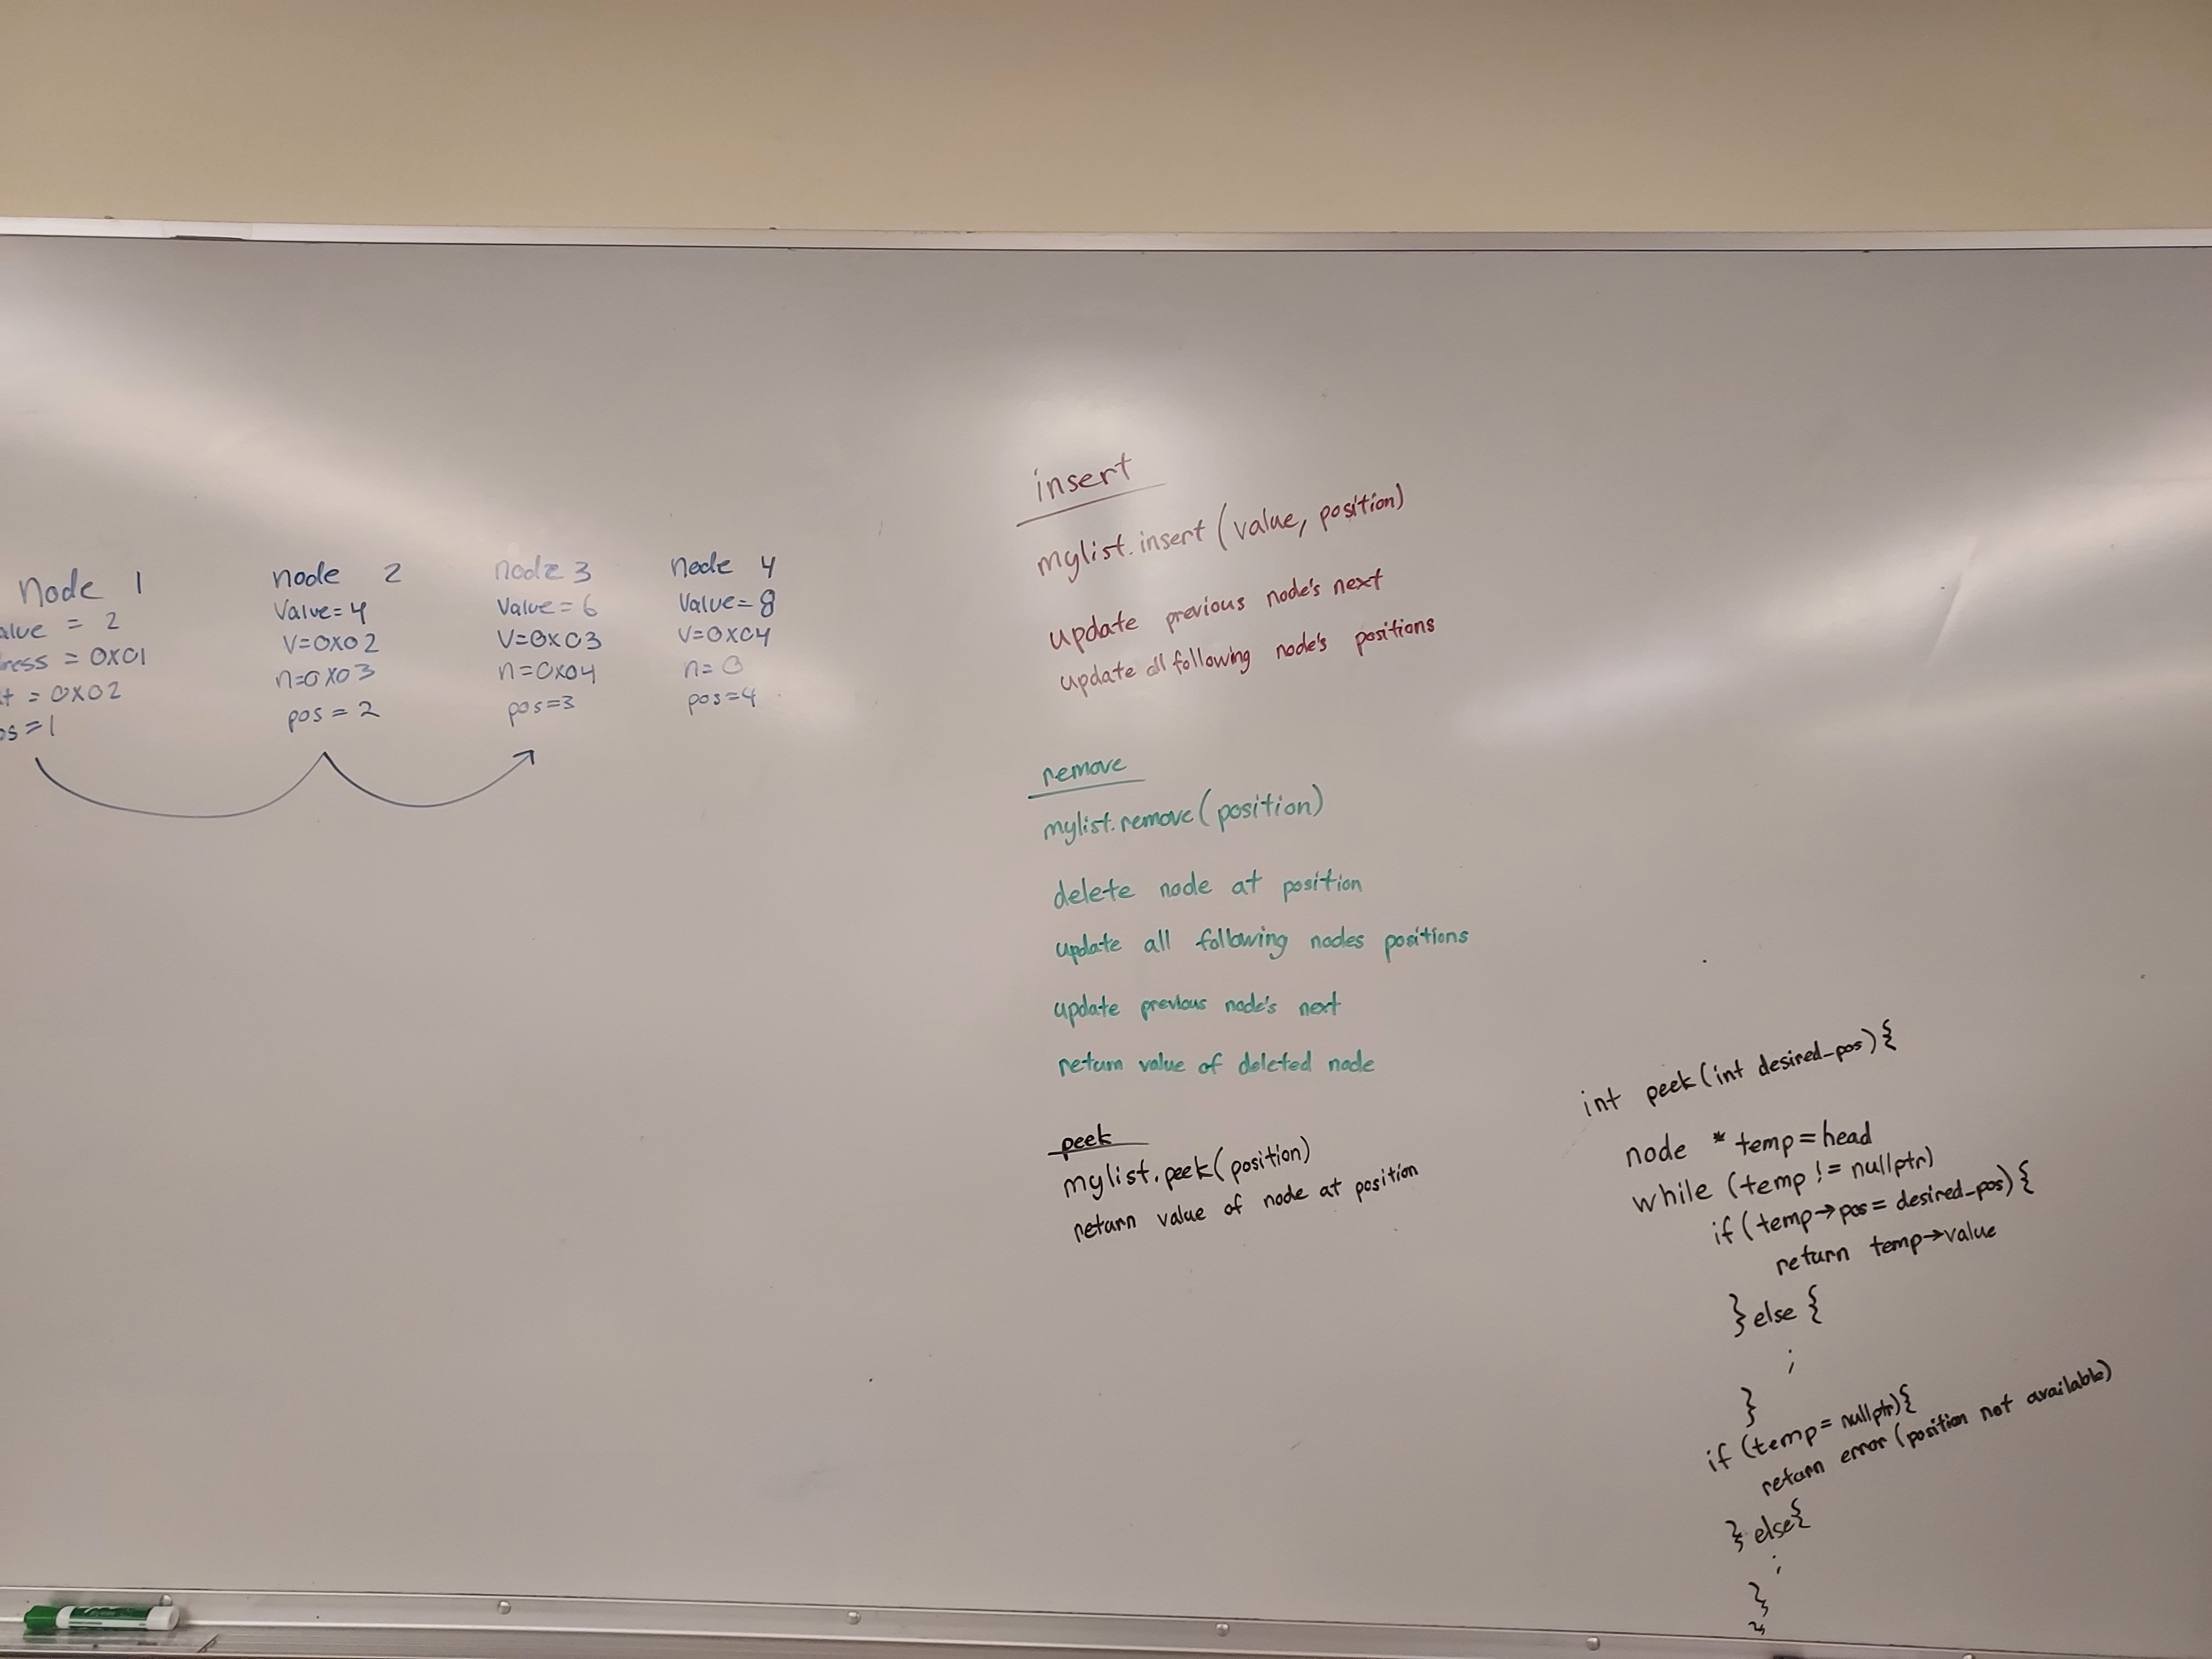 node 1
alue = 2
ress = 0x01
t = 0x02
os = 1
node 2
Value=4
V=0x02
n=0x03
pos = 2
node 3
Value = 6
V=0x03
n=0x04
pos=3
node 4
Value=8
V=0x04
n= 0
pos=4
insert
mylist.insert (value, position)
update previous node's next
update all following node's positions
remove
mylist.remove(position)
delete node at position
update all following nodes positions
update previous node's next
return value of deleted node
peek
mylist.peek(position)
return value of node at position
int peek(int desired_pos){
node * temp=head
while (temp != nullptr)
if (temp→pos= desired_pos){
return temp→value
} else {
;
}
if (temp= nullptr){
return error (position not available)
} else{
;
}
}